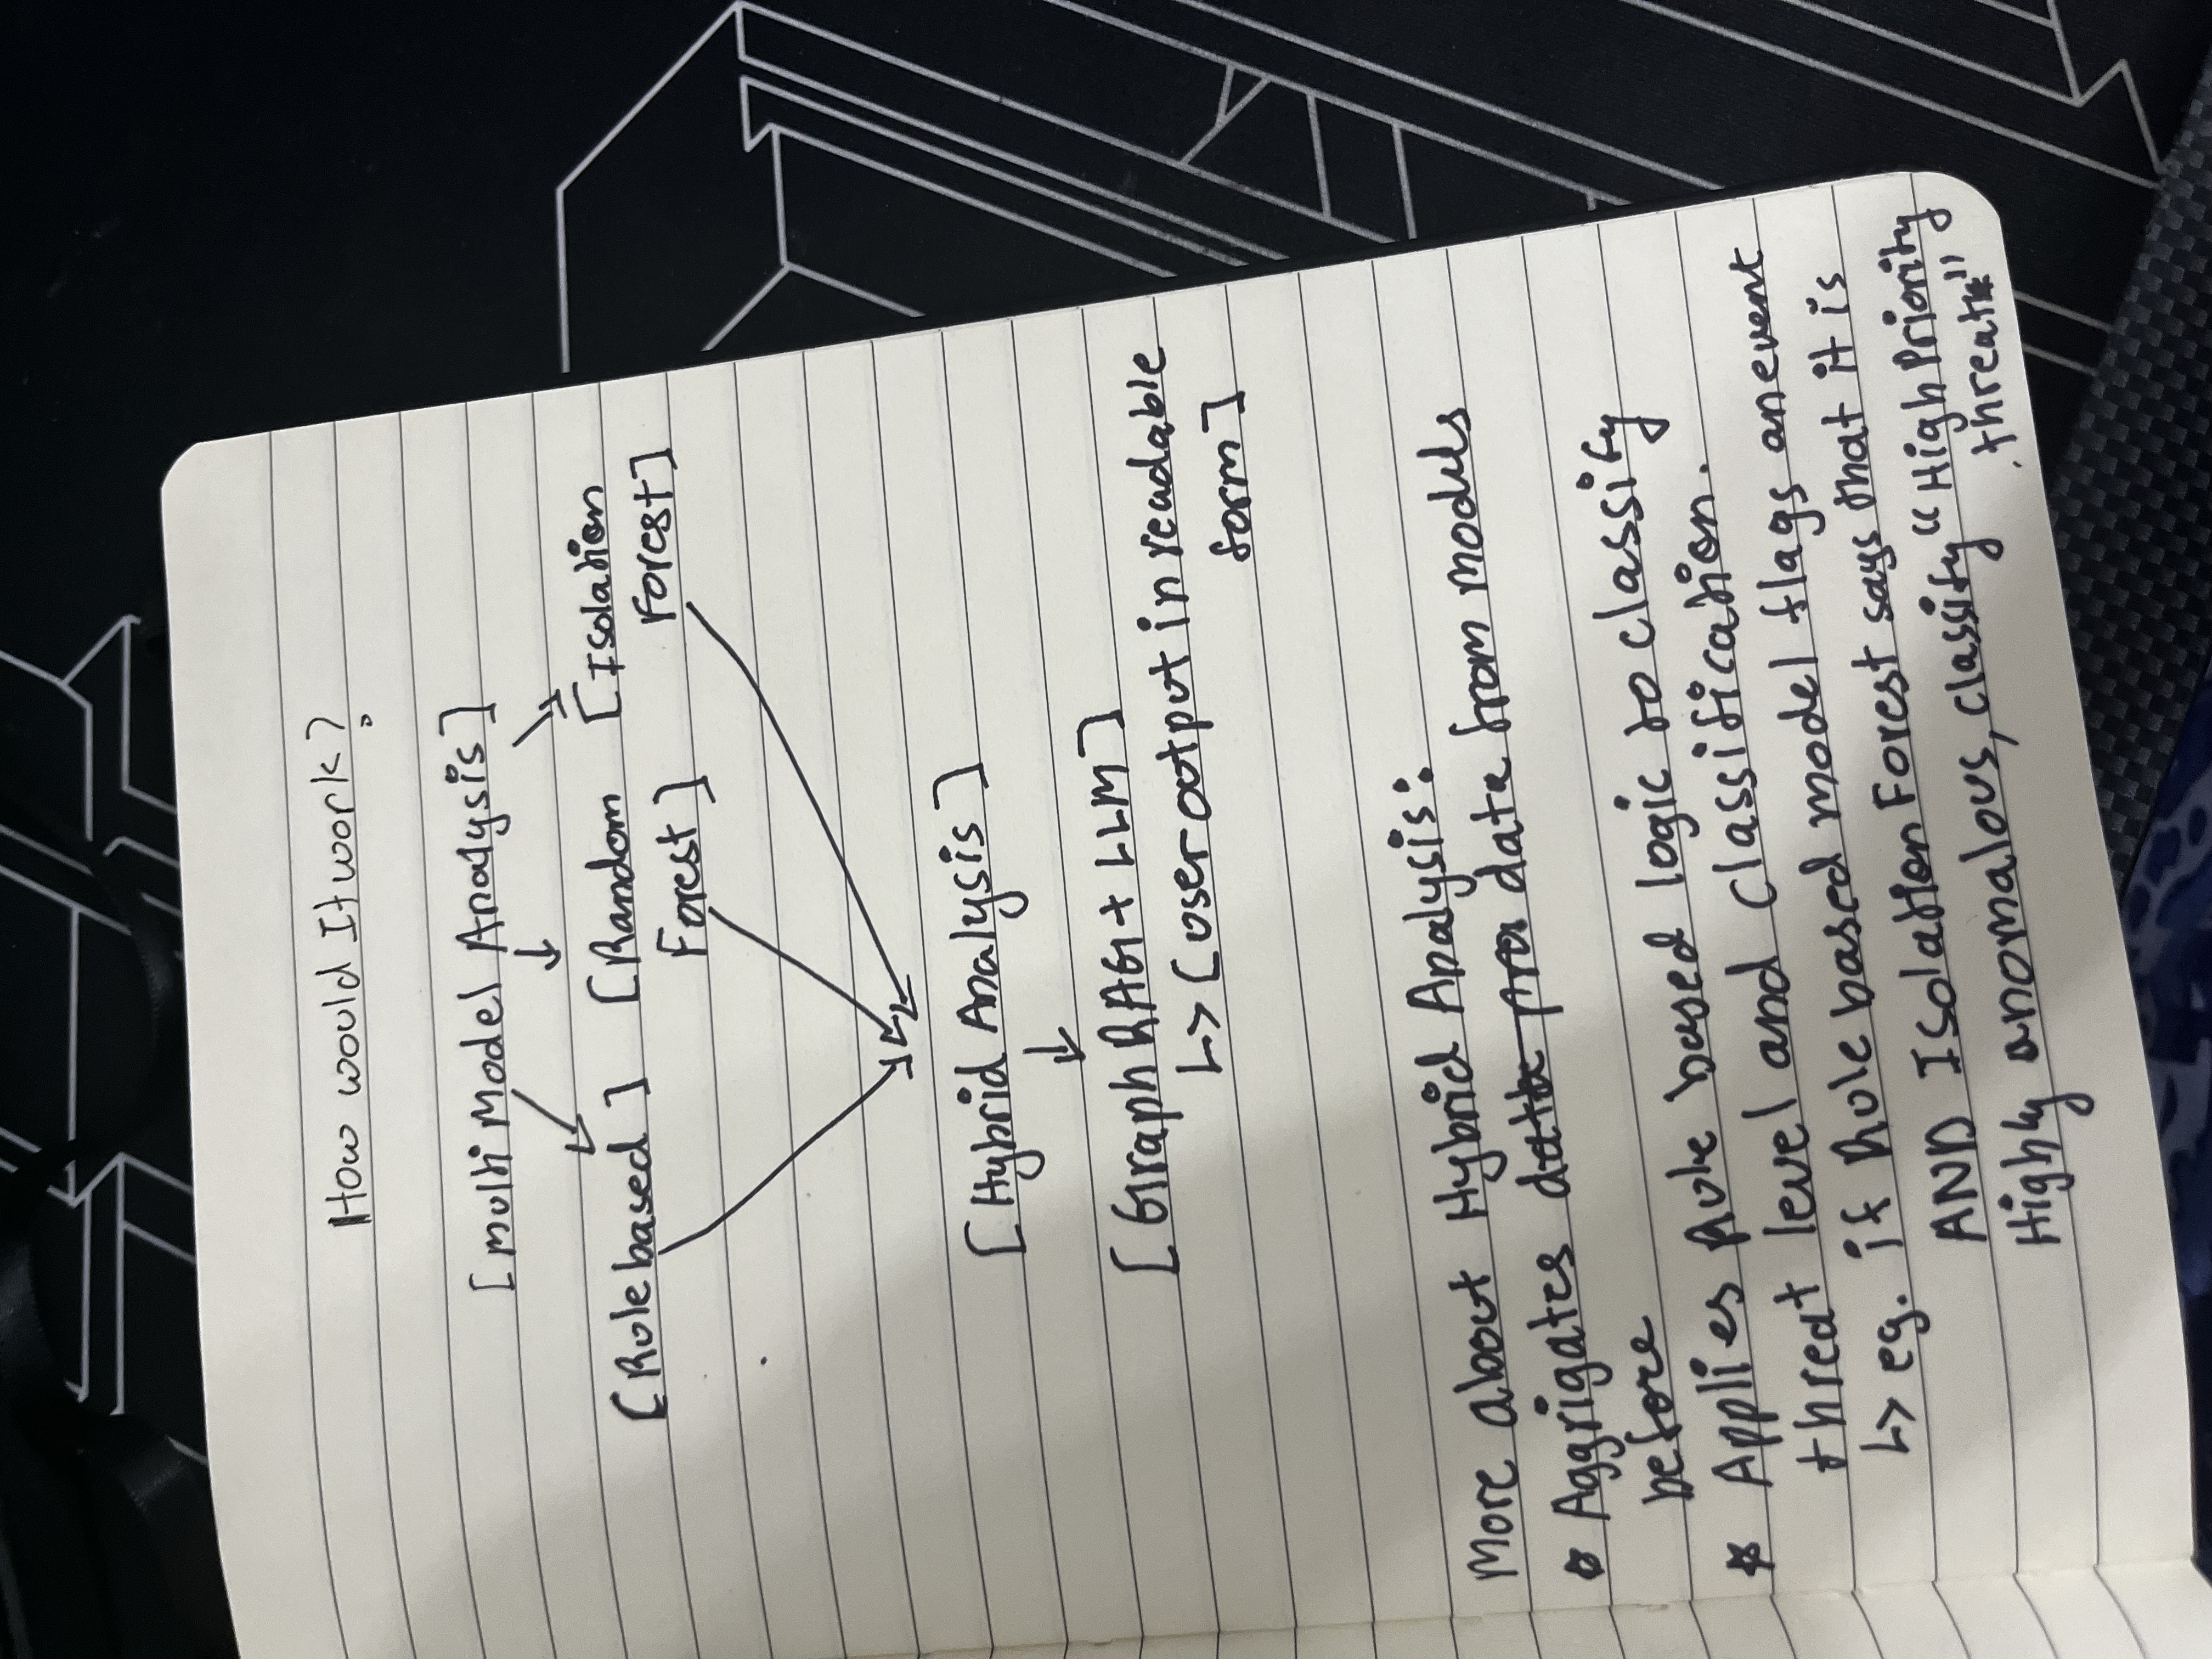 How would It work?
[Multi Model Analysis]
[Rule based] [Random [Isolation
Forest] Forest]
[Hybrid Analysis]
[Graph RAG + LLM]
↳ [user output in readable
form]
More about Hybrid Analysis:
* Aggrigates data from models
before
* Applies Rule based logic to classify
threat level and classification.
↳ eg. if Rule based model flags an event
AND Isolation Forest says that it is
Highly anomalous, classify "High Priority
threat"